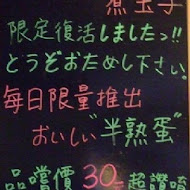 煮玉子
限定復活しましたっ!!
とうぞおためし下さい。
毎日限量推出
おいしい"半熟蛋"
品嚐價30元超讚唷